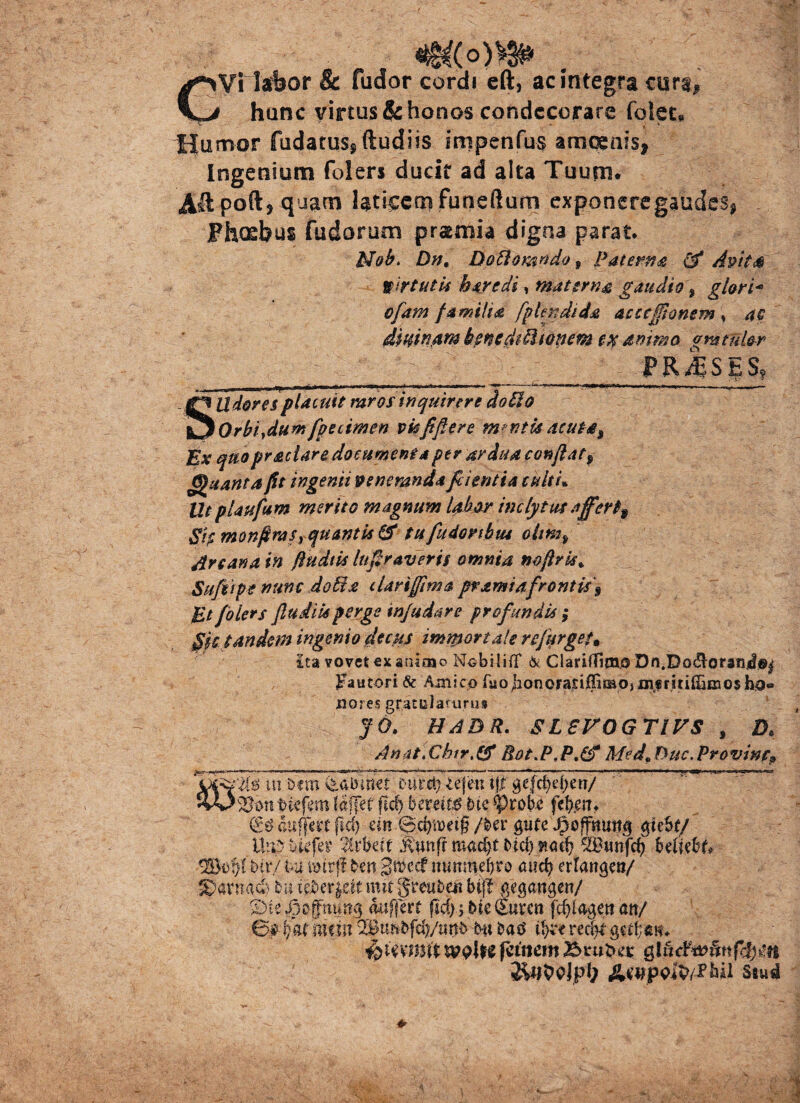 (o)
CVi labor & sudor cordi est, ac integra cura,
hunc virtus & honos condecorare solet.
Humor sudatus, studiis impensus amœnis,
Ingenium solers ducit ad alta Tuum.
Ast post, quam laticem funestum exponere gaudes,
Phœbus sudorum præmia digna parat.
Nob. Dn. Doctorando, Paternæ & Avitæ
virtutis hæredi, maternæ gaudio, glori-
osam familiæ splendidæ accessionem, ac
divinam benedictionem ex animo gratulor
PRÆSES,
SUdores placuit raros inquirere docto
Orbi, dum specimen vis sistere mentis acutæ,
Ex quo præclare documenta per ardua constat,
Quanta sit ingenii veneranda scientia culti.
Ut plausum merito magnum labor inclytus affert,
Sic monstras, quantis & tu sudoribus olim,
Arcana in studiis lustraveris omnia nostris.
Suscipe nunc doctæ clarissima præmia frontis,
Et solers studiis perge insudare profundis;
Sic tandem ingenio decus immortale resurget.
Ita vovet ex animo Nobiliss & Clarissimo Dn. Doctorando,
Fautori & Amico suo honoratissimo, meritissimos ho-
nores gratulaturus
JO. HADR. SLEVOGTIVS, D.
Anat. Chir. & Bot. P.P. & Med. Duc. Provinc.
Als in dem Cabinet durch Lesen ist geschehen/
Von diesem lässet sich bereits die Probe sehen.
Es äussert sich ein Schweiß/der gute Hoffnung giebt/
Und dieser Arbeit Kunst macht dich nach Wunsch beliebt.
Wohl dir/ du wirst den Zweck nunmehro auch erlangen/
Darnach du iederzeit mit Freuden bist gegangen/
Die Hoffnung äussert sich; die Euren schlagen an/
Es hat mein Wundsch/und du das ihre recht gethan.
Hiermit wolte seinem Bruder glückwünschen
Rudolph Leupold/Phil Stud